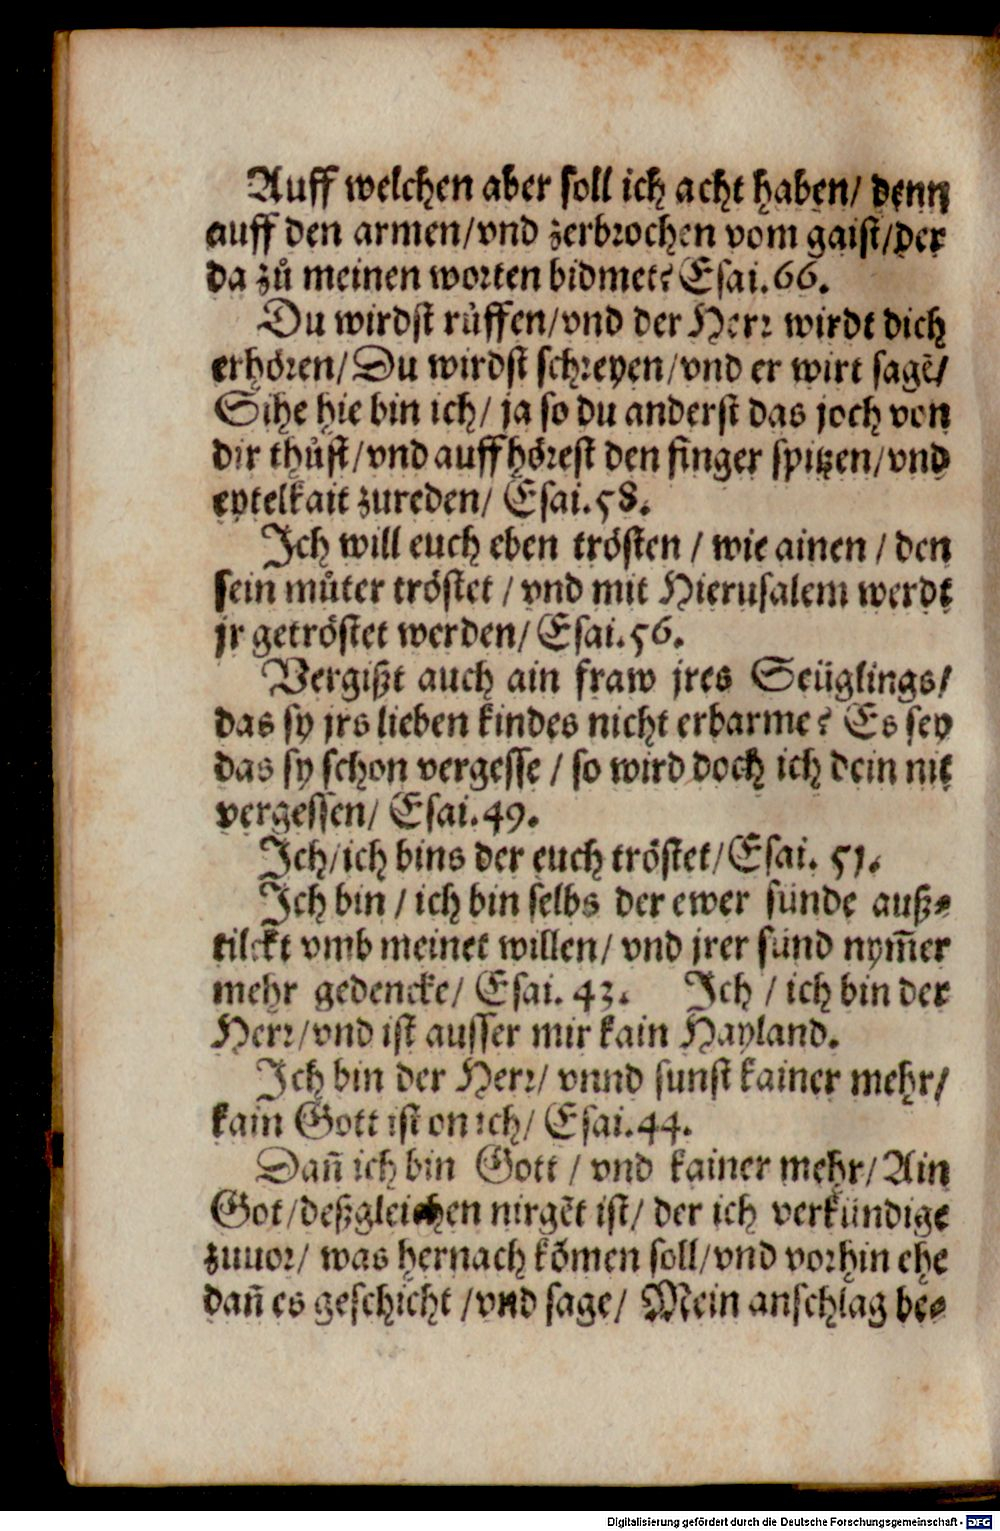 Auff welchen aber soll ich acht haben/ denn
auff den armen/vnd zerbrochen vom gaist/der
da zů meinen worten bidmet? Esai.66.
Du wirdst růffen/vnd der Herr wirdt dich
erhören/Du wirdst schreyen/vnd er wirt sagẽ/
Sihe hie bin ich/ ja so du anderst das joch von
dir thůst/vnd auffhörest den finger spitzen/vnd
eytelkait zureden/ Esai.58.
Ich will euch eben trösten / wie ainen / den
sein můter tröstet / vnd mit Hierusalem werdt
jr getröstet werden/ Esai.56.
Vergißt auch ain fraw jres Seüglings/
das sy jrs lieben kindes nicht erbarme? Es sey
das sy schon vergesse / so wird doch ich dein nit
vergessen/ Esai.49.
Ich/ich bins der euch tröstet/Esai. 51.
Ich bin / ich bin selbs der ewer sünde auß-
tilckt vmb meinet willen/ vnd jrer sünd nym̃er
mehr gedencke/ Esai. 43. Ich / ich bin der
Herr/vnd ist ausser mir kain Hayland.
Ich bin der Herr/ vnnd sunst kainer mehr/
kain Gott ist on ich/ Esai.44.
Dañ ich bin Gott / vnd kainer mehr/ Ain
Got/deßgleichen nirgẽt ist/ der ich verkündige
zuuor/ was hernach kõmen soll/vnd vorhin ehe
dañ es geschicht /vnd sage/ Mein anschlag be-
Digitalisierung gefördert durch die Deutsche Forschungsgemeinschaft - DFG